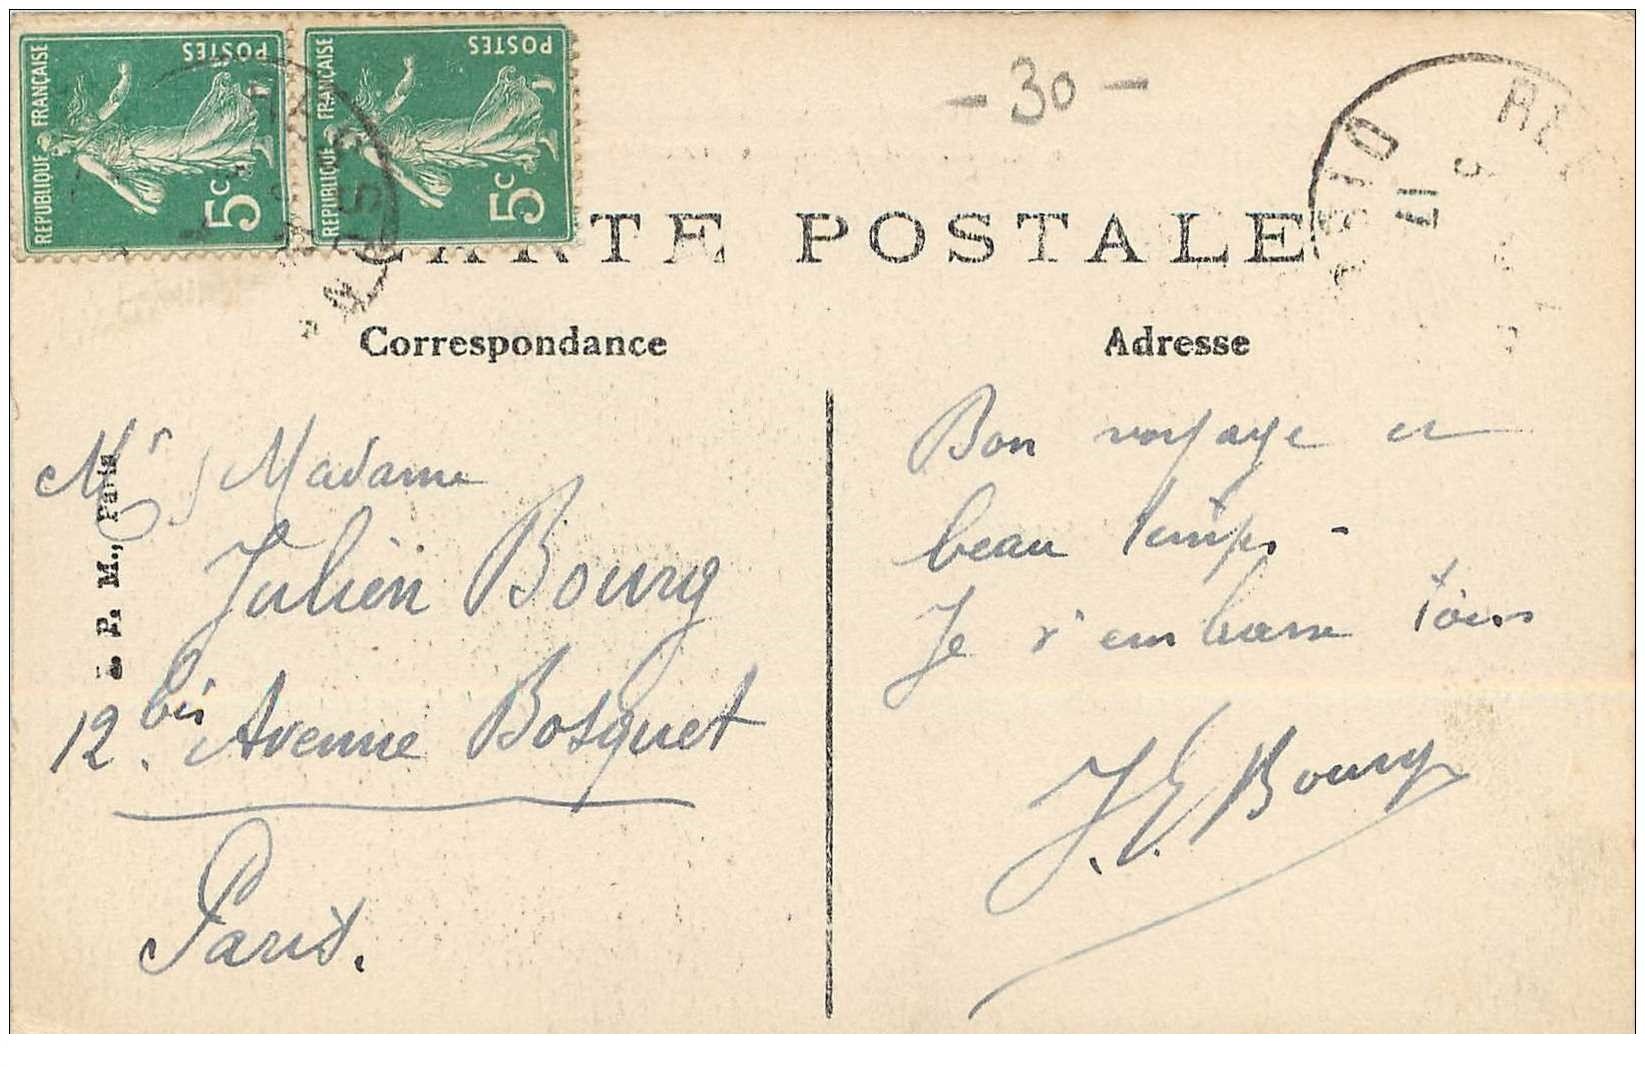 REPUBLIQUE FRANÇAISE
POSTES
5c
REPUBLIQUE FRANÇAISE
POSTES
5c
- 30 -
CARTE POSTALE
Correspondance
Adresse
P. M., Paris
Mr & Madame
Julien Bourg
12 bis. Avenue Bosquet
Paris.
Bon voyage et
beau temps -
Je v'embrasse tous
J. E. Bourg